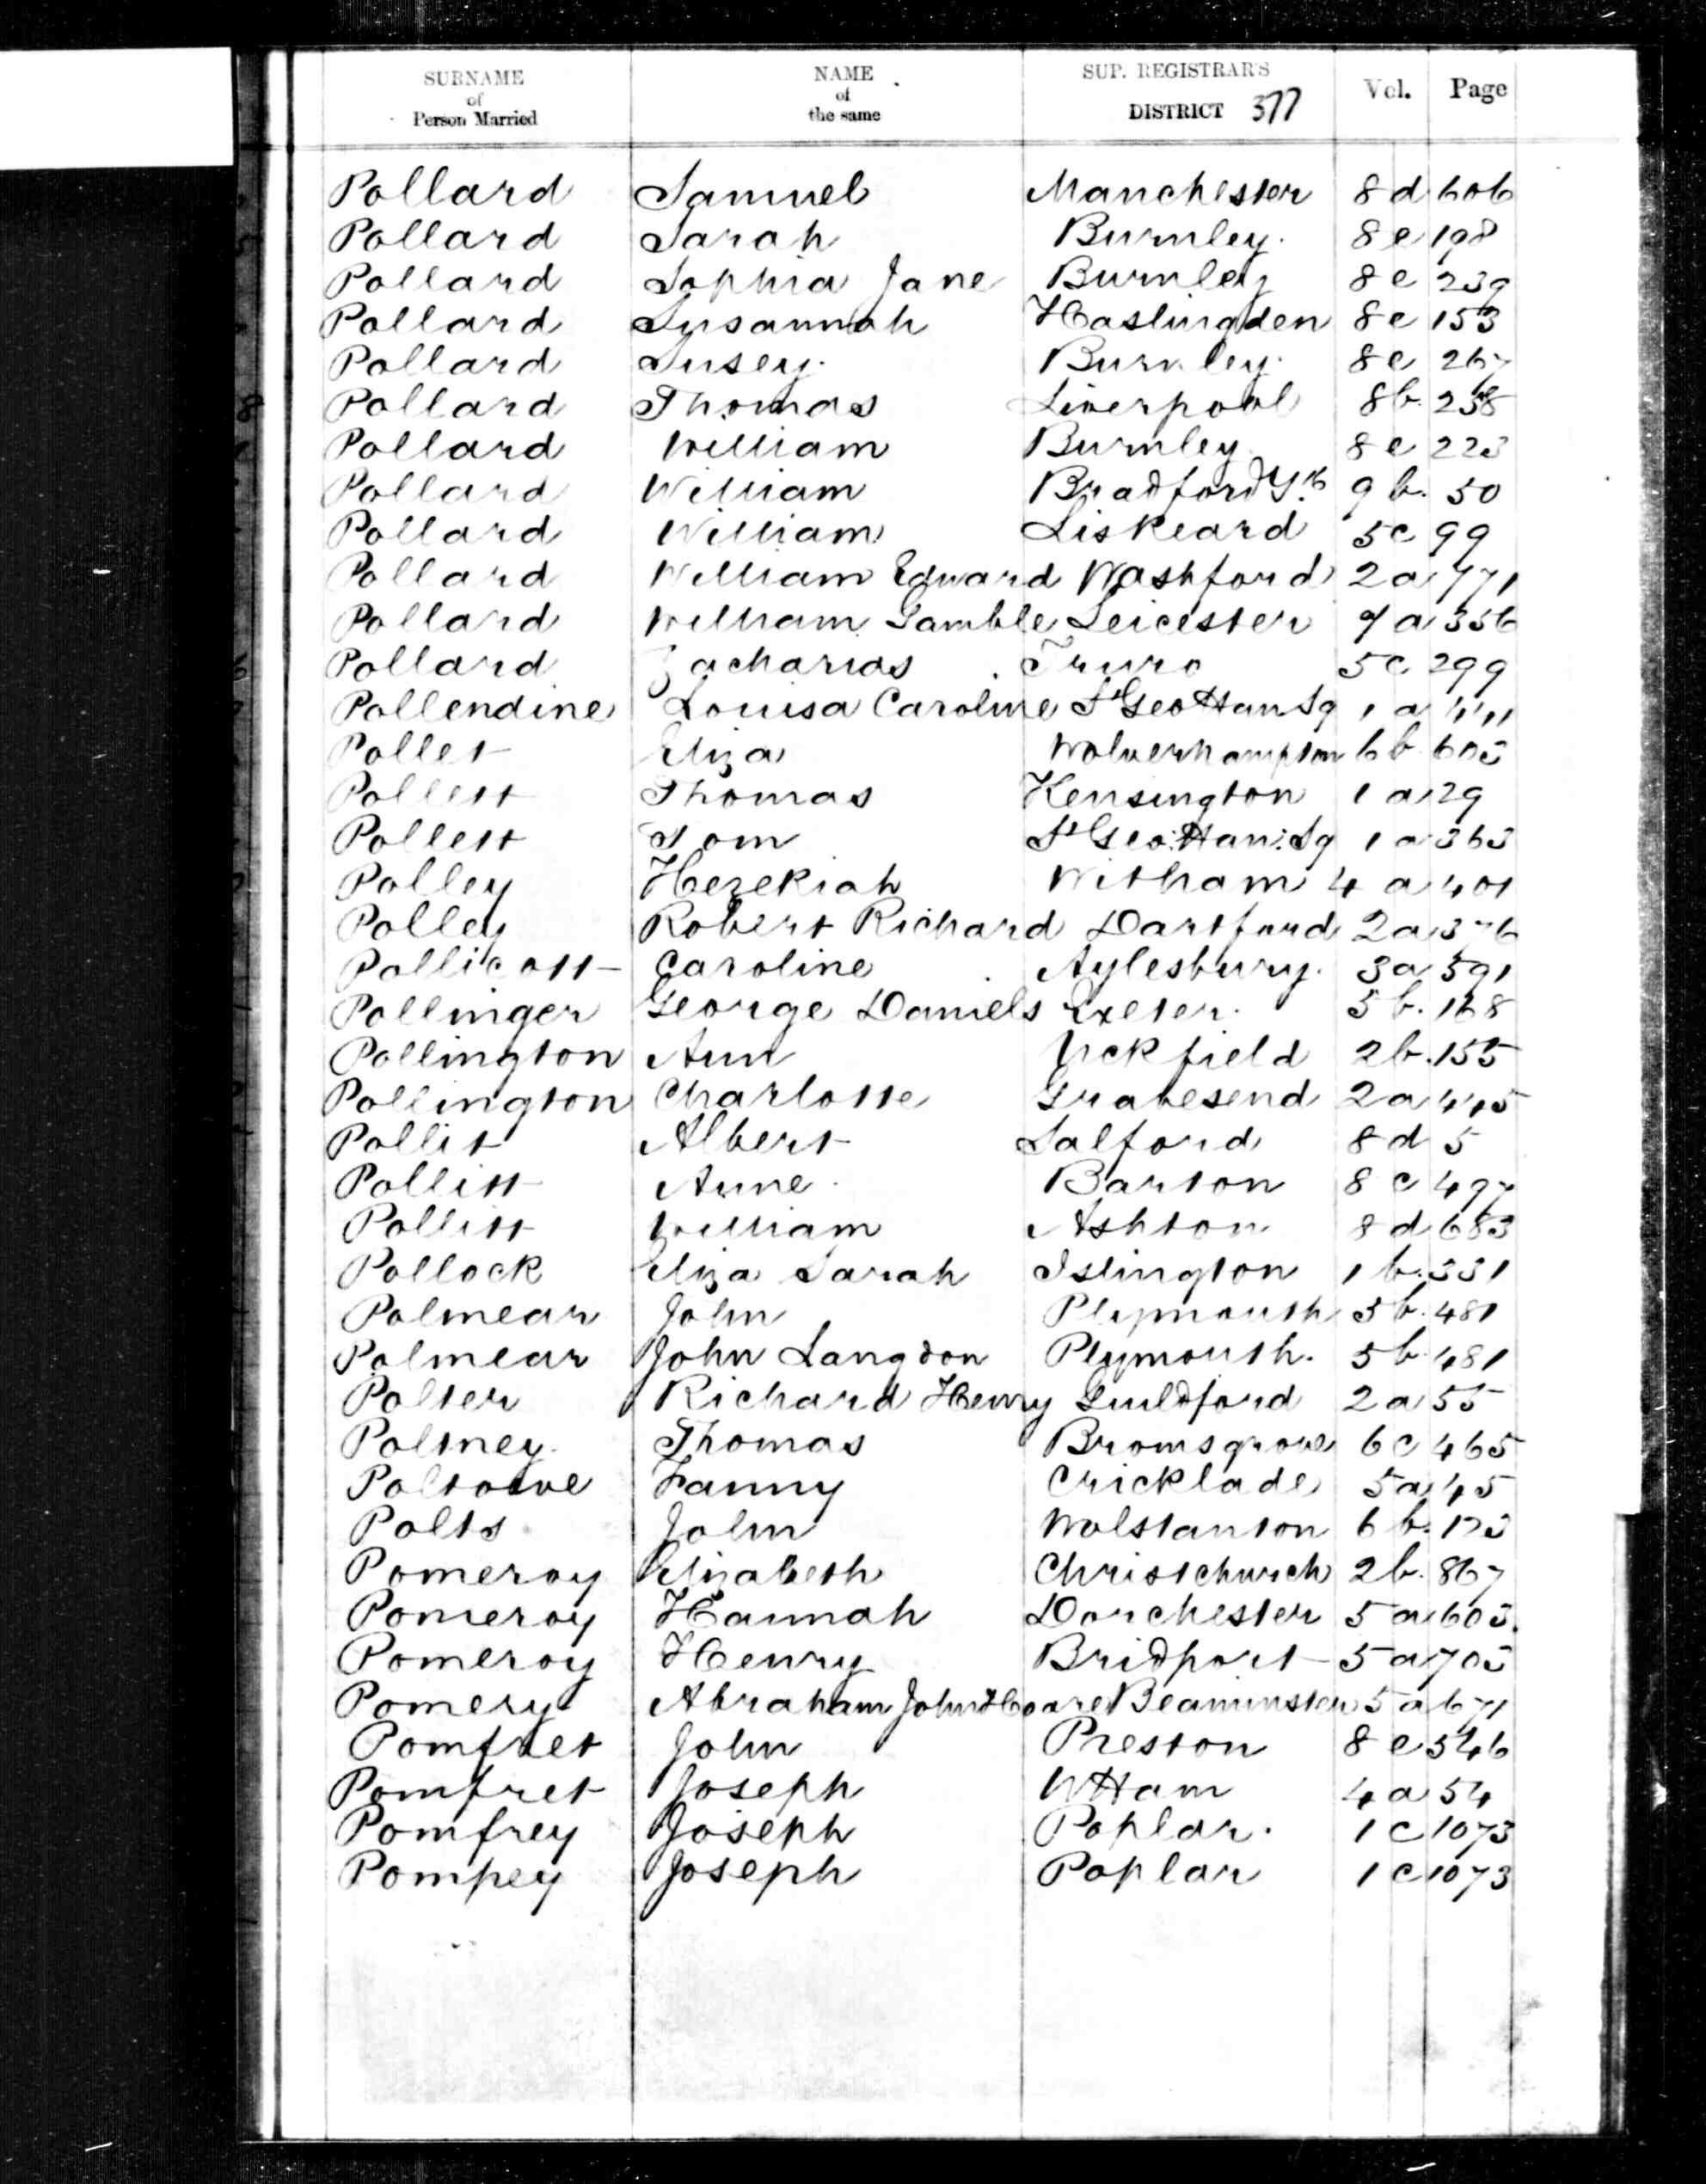 SURNAME of Person Married NAME of the same SUP. REGISTRAR'S DISTRICT 377 Vol. Page
Pollard Samuel Manchester 8 d 606
Pollard Sarah Burnley. 8 e 198
Pollard Sophia Jane Burnley 8 e 239
Pollard Susannah Haslingden 8 e 153
Pollard Susey. Burnley. 8 e
Pollard Thomas Liverpool 8 b. 258
Pollard William Burnley. 8 e 223
Pollard William Bradford Yk 9 b. 50
Pollard William Liskeard 5 c 99
Pollard William Edward Washford 2 a 771
Pollard William Gamble Leicester 7 a 356
Pollard Zacharias Truro 5 c 299
Pollendine Louisa Caroline St Geo Han Sq 1 a
Pollet Eliza Wolverhampton 6 b 603
Pollett Thomas Kensington 1 a 29
Pollett Tom St Geo: Han: Sq 1 a 363
Polley Hezekiah Witham 4 a 401
Polley Robert Richard Dartford 2 a 376
Pollicott Caroline Aylesbury. 3 a 591
Pollinger George Daniels Exeter. 5 b. 168
Pollington Ann Uckfield 2 b. 155
Pollington Charlotte Gravesend 2 a 445
Pollit Albert Salford 8 d 5
Pollitt Anne Barton 8 c 497
Pollitt William Ashton 8 d 683
Pollock Eliza Sarah Islington 1 b. 331
Polmear John Plymouth 5 b. 481
Polmear John Langdon Plymouth. 5 b 481
Polter Richard Henry Guildford 2 a 55
Poltney. Thomas Bromsgrove 6 c 465
Fanny Cricklade 5 a 45
Polts John Wolstanton 6 b. 173
Pomeroy Elizabeth Christchurch 2 b. 867
Pomeroy Hannah Dorchester 5 a 603.
Pomeroy Henry Bridport 5 a 703
Pomery Abraham John Hoare Beaminster 5 a 671
Pomfret John Preston 8 e 546
Pomfret Joseph W Ham 4 a 54
Pomfrey Joseph Poplar. 1 c 1073
Pompey Joseph Poplar 1 c 1073